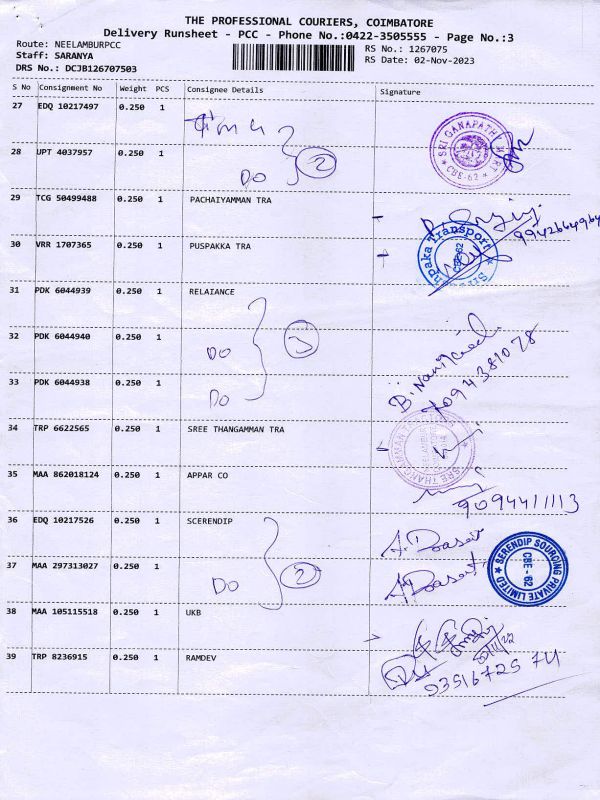 THE PROFESSIONAL COURIERS, COIMBATORE
Delivery Runsheet - PCC - Phone No.:0422-3505555 - Page No.:3
Route: NEELAMBURPCC
RS No.: 1267075
Staff: SARANYA
RS Date: 02-Nov-2023
DRS No.: DCJB126707503
S No Consignment No Weight PCS Consignee Details Signature
27 EDQ 10217497 0.250 1
SRI GANAPATHY MART
CBE-62
28 UPT 4037957 0.250 1 DO 2
29 TCG 50499488 0.250 1 PACHAIYAMMAN TRA
9942664964
30 VRR 1707365 0.250 1 PUSPAKKA TRA
Transport
CBE-62
31 PDK 6044939 0.250 1 RELAIANCE
32 PDK 6044940 0.250 1 DO 3
33 PDK 6044938 0.250 1 DO
7094381078
34 TRP 6622565 0.250 1 SREE THANGAMMAN TRA
SREE THANGAMMAN
35 MAA 862018124 0.250 1 APPAR CO
9094411113
36 EDQ 10217526 0.250 1 SCERENDIP
37 MAA 297313027 0.250 1 DO 2
SERENDIP SOURCING PRIVATE LIMITED
CBE - 62
38 MAA 105115518 0.250 1 UKB
39 TRP 8236915 0.250 1 RAMDEV
9351672574